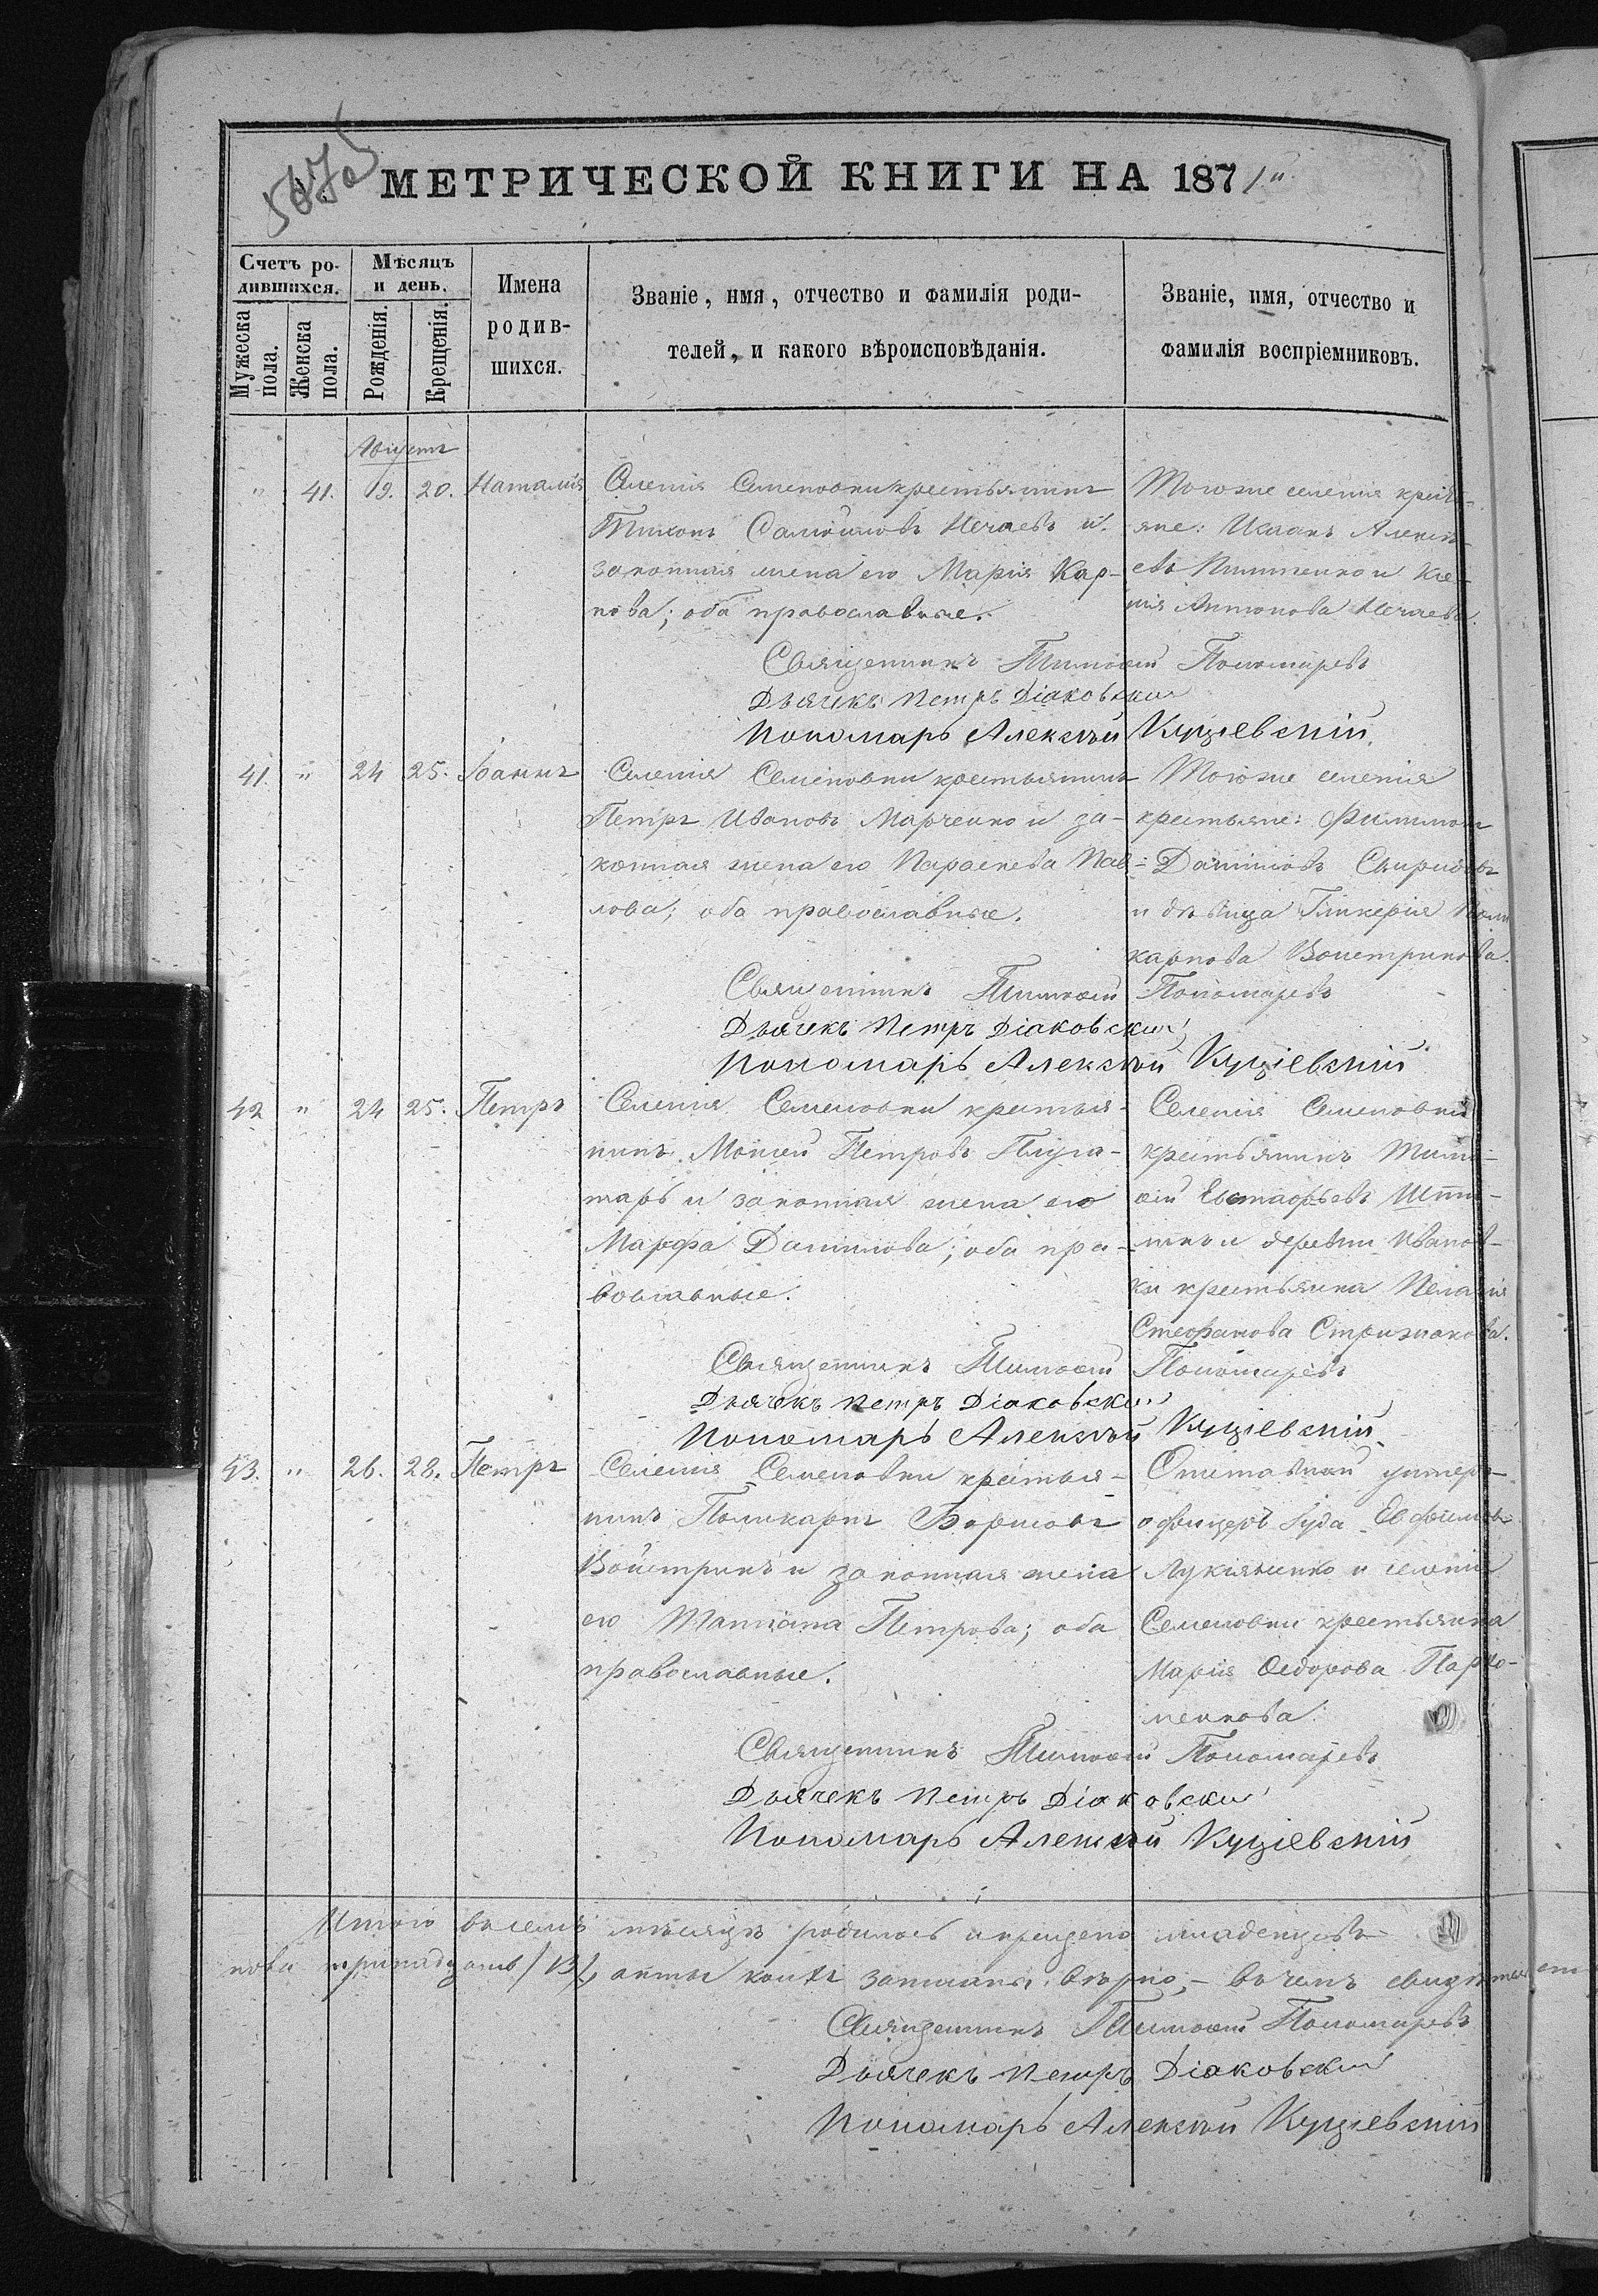 МЕТРИЧЕСКОЙ КНИГИ НА 1871
Счетъ ро-
дившихся.
Мѣсяцъ
и день.
Мужеска
пола.
Женска
пола.
Рожденія.
Крещенія.
Имена
родив-
шихся.
Званіе, имя, отчество и фамилія роди-
телей, и какого вѣроисповѣданія.
Званіе, имя, отчество и
фамилія воспріемниковъ.
Августъ
" 41. 19. 20. Наталія
Селенія Семеновки крестьянинъ
Тихонъ Самойловъ Нечаевъ и
законная жена его Марія Кар-
пова; оба православные.
Тогоже селенія кресть-
яне: Исаакъ Алексѣ-
евъ и Ксе-
нія Антонова Нечаева.
Священникъ Тимоѳей Пономаревъ
Дьячекъ Петръ Діаковскій
Пономарь Алексѣй Куціевскій
41. " 24 25. Іоаннъ
Селенія Семеновки крестьянинъ
Петръ Ивановъ Марченко и за-
конная жена его Параскева Пав-
лова; оба православные.
Тогоже селенія
крестьяне: Филимонъ
Даниловъ Свиридовъ
и дѣвица Гликерія Поли-
карпова Воистринова.
Священникъ Тимоѳей Пономаревъ
Дьячекъ Петръ Діаковскій
Пономарь Алексѣй Куціевскій
42 " 24 25. Петръ
Селенія Семеновки крестья-
нинъ Моисей Петровъ Плуга-
таръ и законная жена его
Марфа Данилова; оба пра-
вославные.
Селенія Семеновки
крестьянинъ Тимо-
ѳей Евстафьевъ
и деревни Иванов-
ки крестьянка Пелагія
Стефанова Стрижакова.
Священникъ Тимоѳей Пономаревъ
Дьячекъ Петръ Діаковскій
Пономарь Алексѣй Куціевскій
43. " 26. 28. Петръ
Селенія Семеновки крестья-
нинъ Поликарпъ Борисовъ
Воистринъ и законная жена
его Татіана Петрова; оба
православные.
Отставной унтеръ-
офицеръ Іуда Евфимовъ
Лукіяненко и селенія
Семеновки крестьянка
Марія Ѳедорова Пархо-
менкова.
Священникъ Тимоѳей Пономаревъ
Дьячекъ Петръ Діаковскій
Пономарь Алексѣй Куціевскій
Итого въ семъ мѣсяцѣ родилось и крещено младенцевъ
пола тринадцать /13/, акты коихъ записаны вѣрно, – въ чемъ свидѣтельст
Священникъ Тимоѳей Пономаревъ
Дьячекъ Петръ Діаковскій
Пономарь Алексѣй Куціевскій